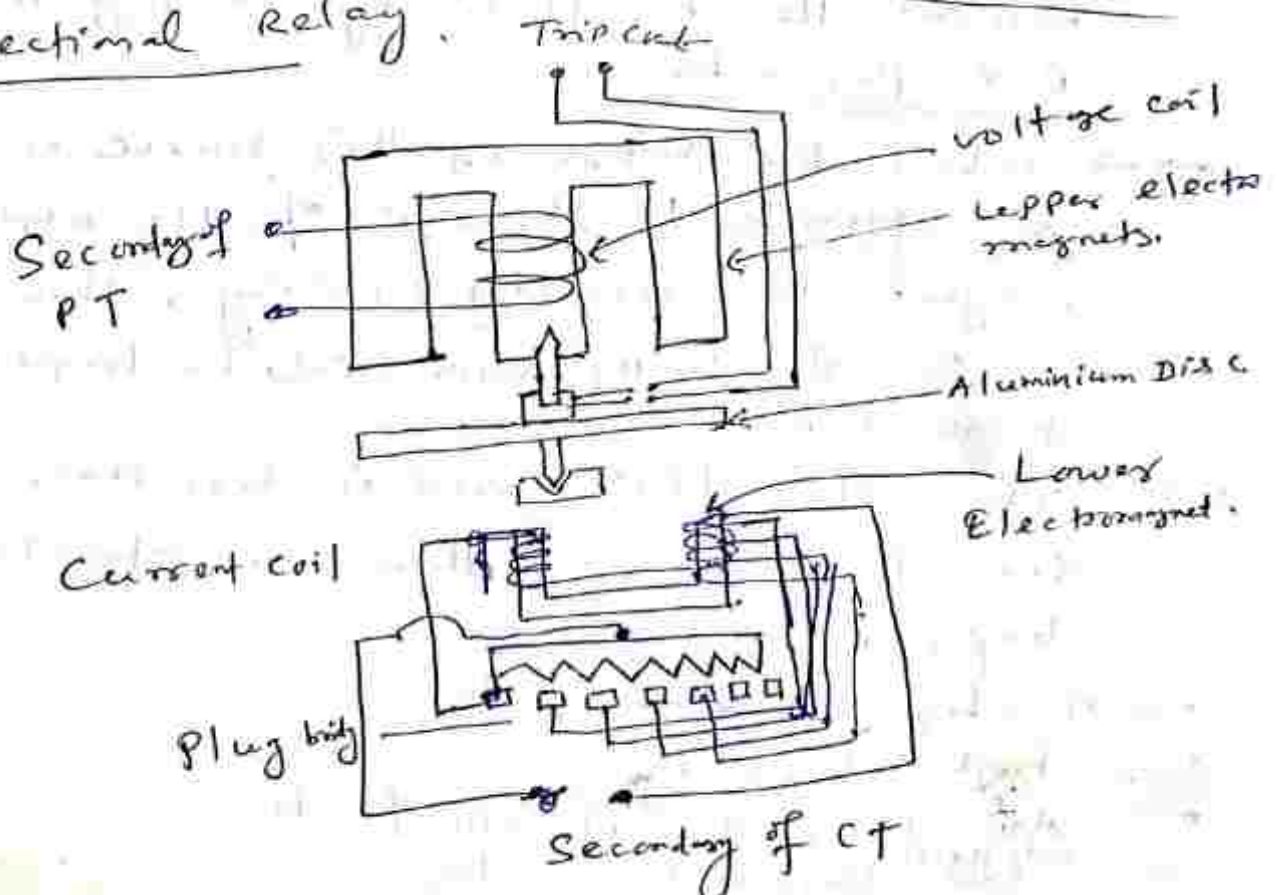 ectional Relay.
Trip ckt
voltage coil
upper electro
magnets.
Secondary of
PT
Aluminium Disc
Lower
Electromagnet.
Current coil
Plug bridg
Secondary of CT